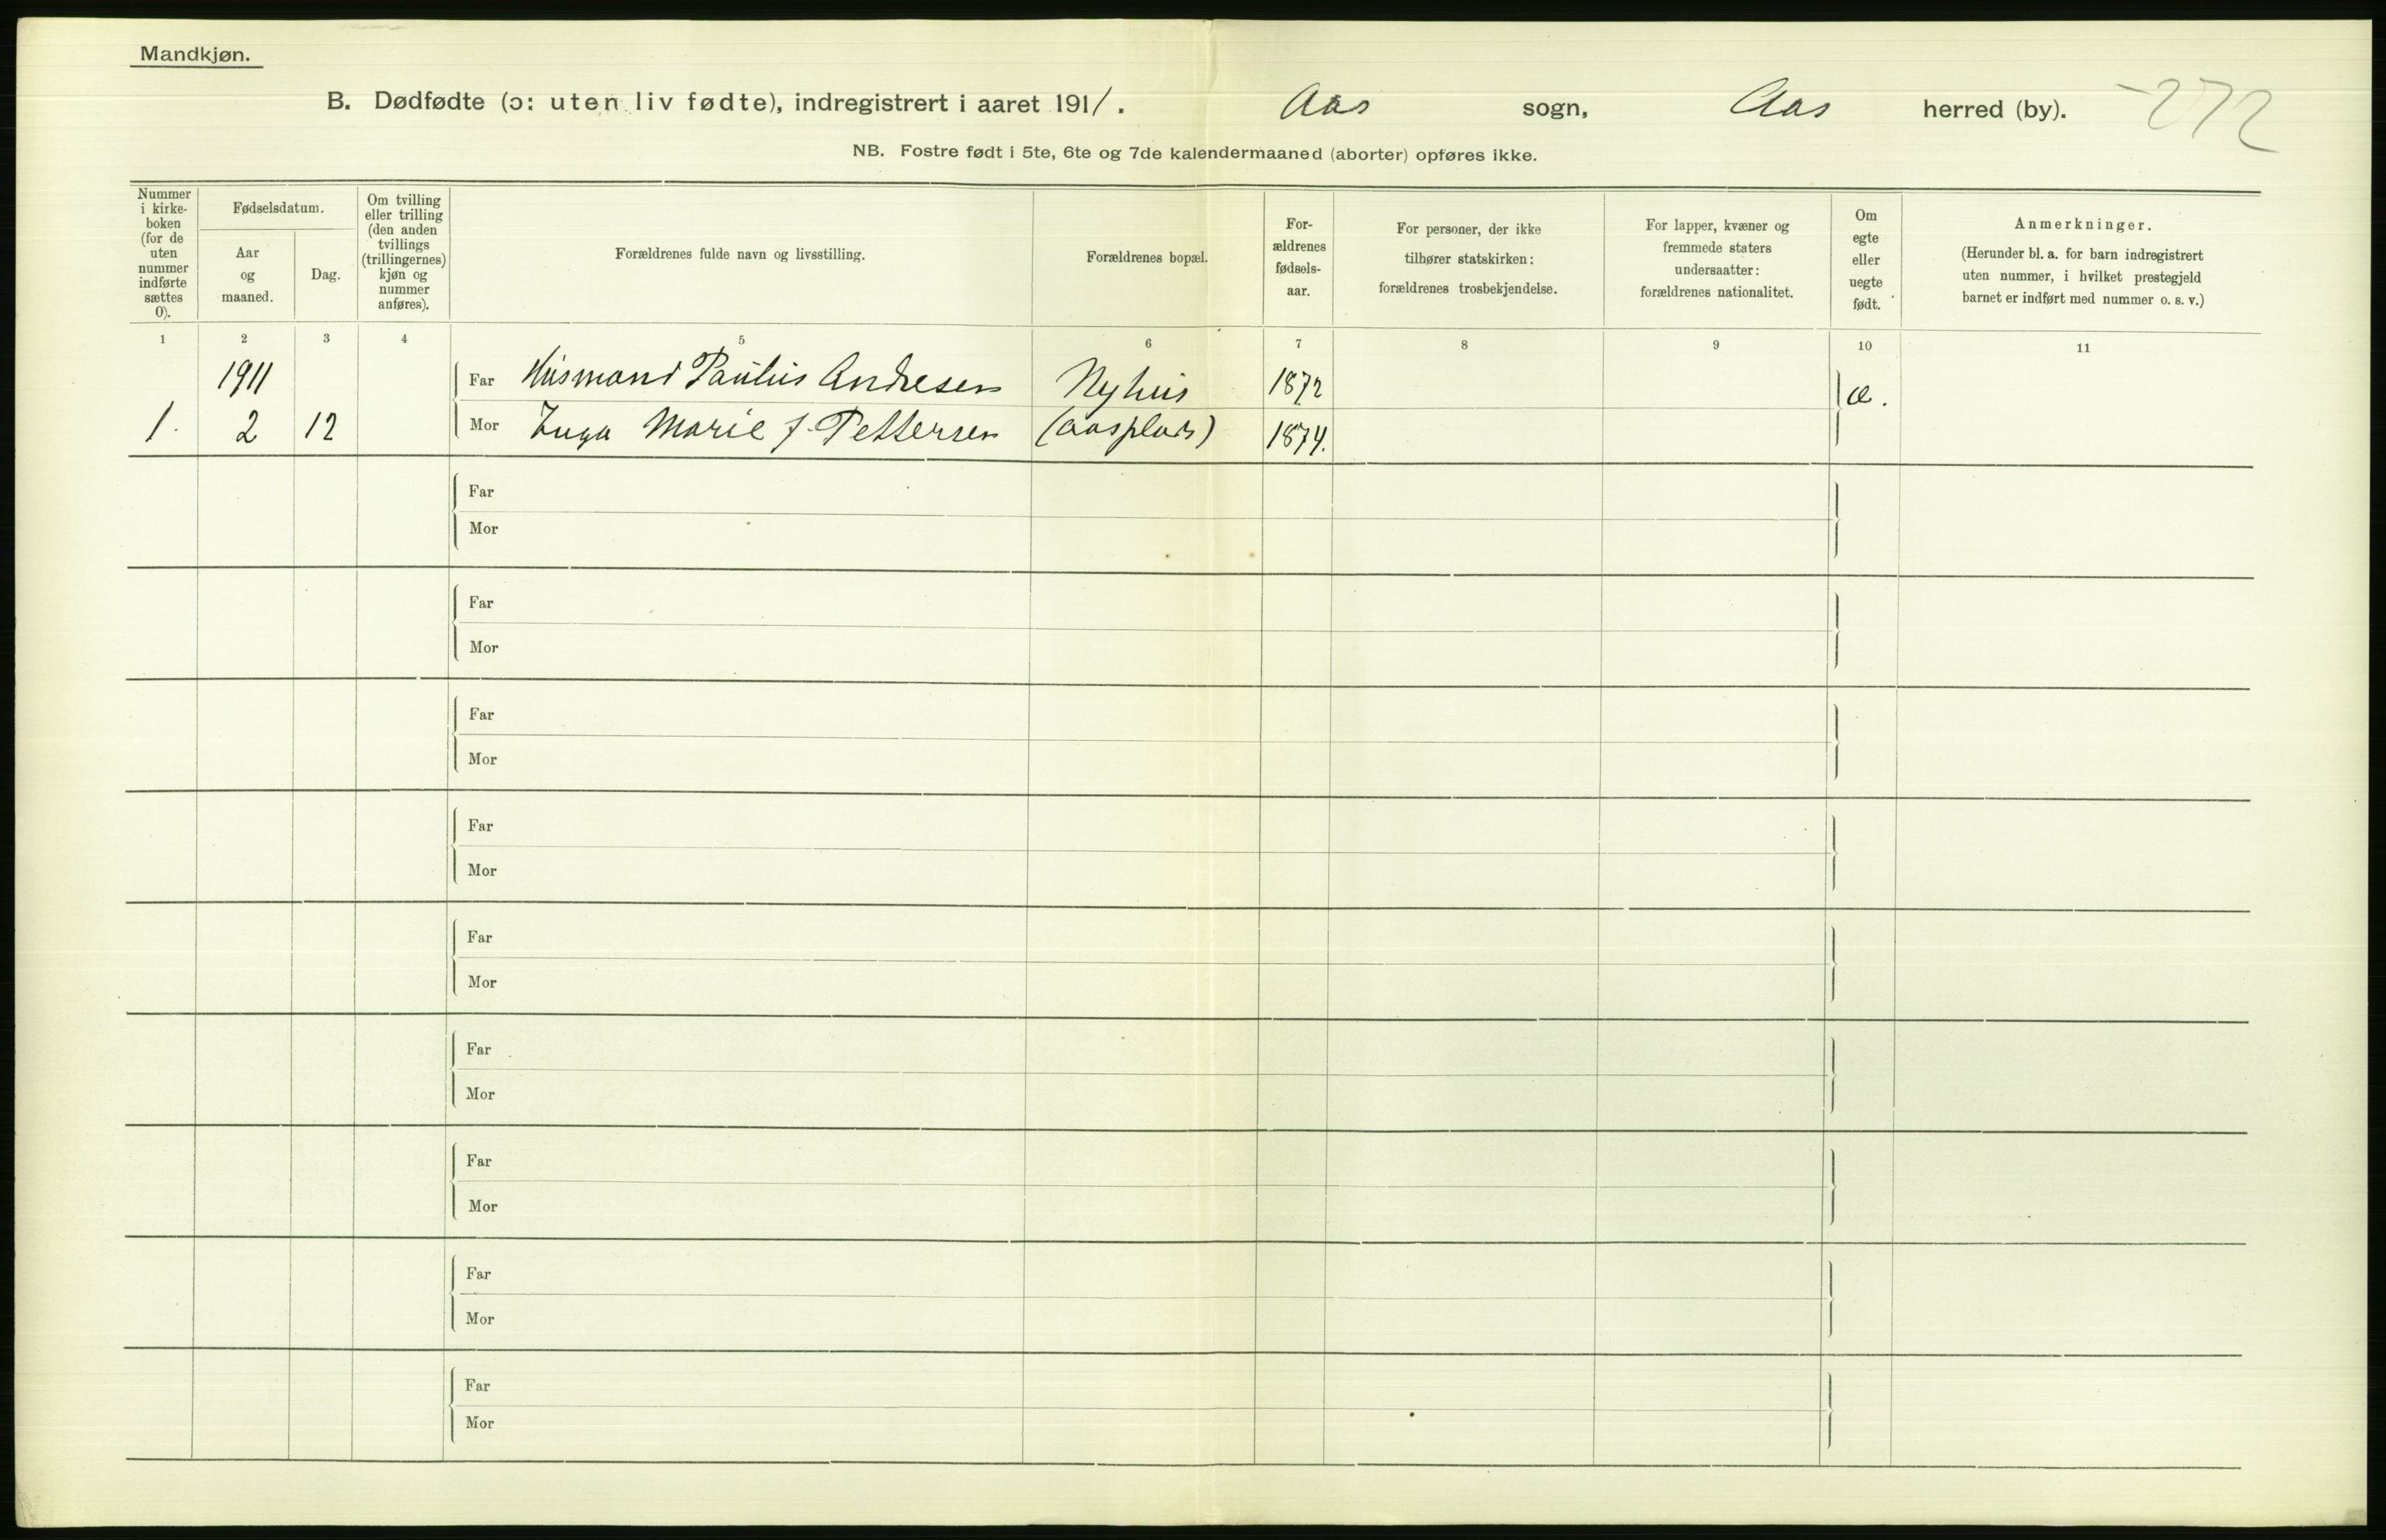 Mandkjøn.
B. Dødfødte (ɔ: uten liv fødte), indregistrert i aaret 1911. Aas sogn, Aas herred (by). -272
NB. Fostre født i 5te, 6te og 7de kalendermaaned (aborter) opføres ikke.
Nummer
i kirke-
boken
(for de
uten
nummer
indførte
sættes
0).
Fødselsdatum.
Aar
og
maaned.
Dag.
Om tvilling
eller trilling
(den anden
tvillings
(trillingernes)
kjøn og
nummer
anføres).
Forældrenes fulde navn og livsstilling.
Forældrenes bopæl.
For-
ældrenes
fødsels-
aar.
For personer, der ikke
tilhører statskirken:
forældrenes trosbekjendelse.
For lapper, kvæner og
fremmede staters
undersaatter:
forældrenes nationalitet.
Om
egte
eller
uegte
født.
Anmerkninger.
(Herunder bl. a. for barn indregistrert
uten nummer, i hvilket prestegjeld
barnet er indført med nummer o. s. v.)
1 2 3 4 5 6 7 8 9 10 11
1911 Far Husmand Paulus Andresen Nyhus 1872 æ.
1. 2 12 Mor Inga Marie f. Pettersen (Aasplads) 1874.
Far
Mor
Far
Mor
Far
Mor
Far
Mor
Far
Mor
Far
Mor
Far
Mor
Far
Mor
Far
Mor